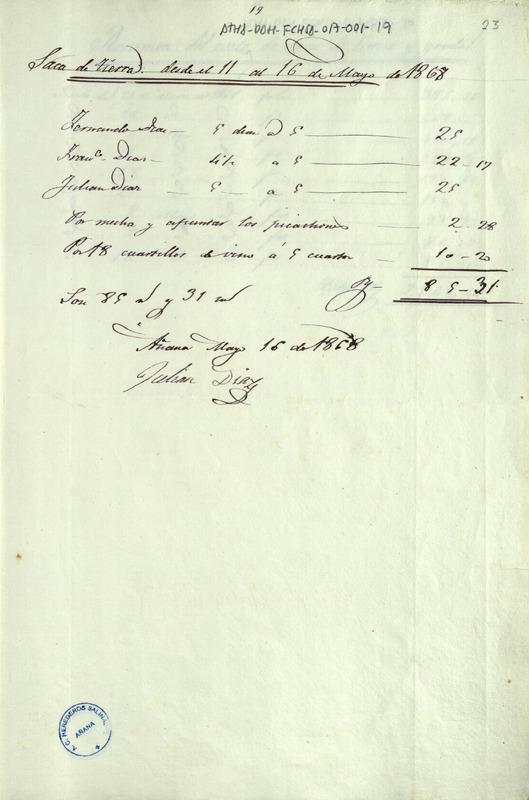 19
ATHA-DDH-FCHSA-017-001-19
23
Saca de tierra desde el 11 al 16 de Mayo de 1868
Fernando Diaz — 5 dias á 5 — 25
Franco Diaz — 4 1/2 a 5 — 22-17
Julian Diaz — 5 — a 5 — 25
Por mecha y apuntar los picachones 2-28
Por 18 cuartillos de vino á 5 cuartos — 10-20
85-31
Son 85 rs y 31 ms
Añana Mayo 16 de 1868
Julian Diaz
A. C. HEREDEROS SALINAS
AÑANA